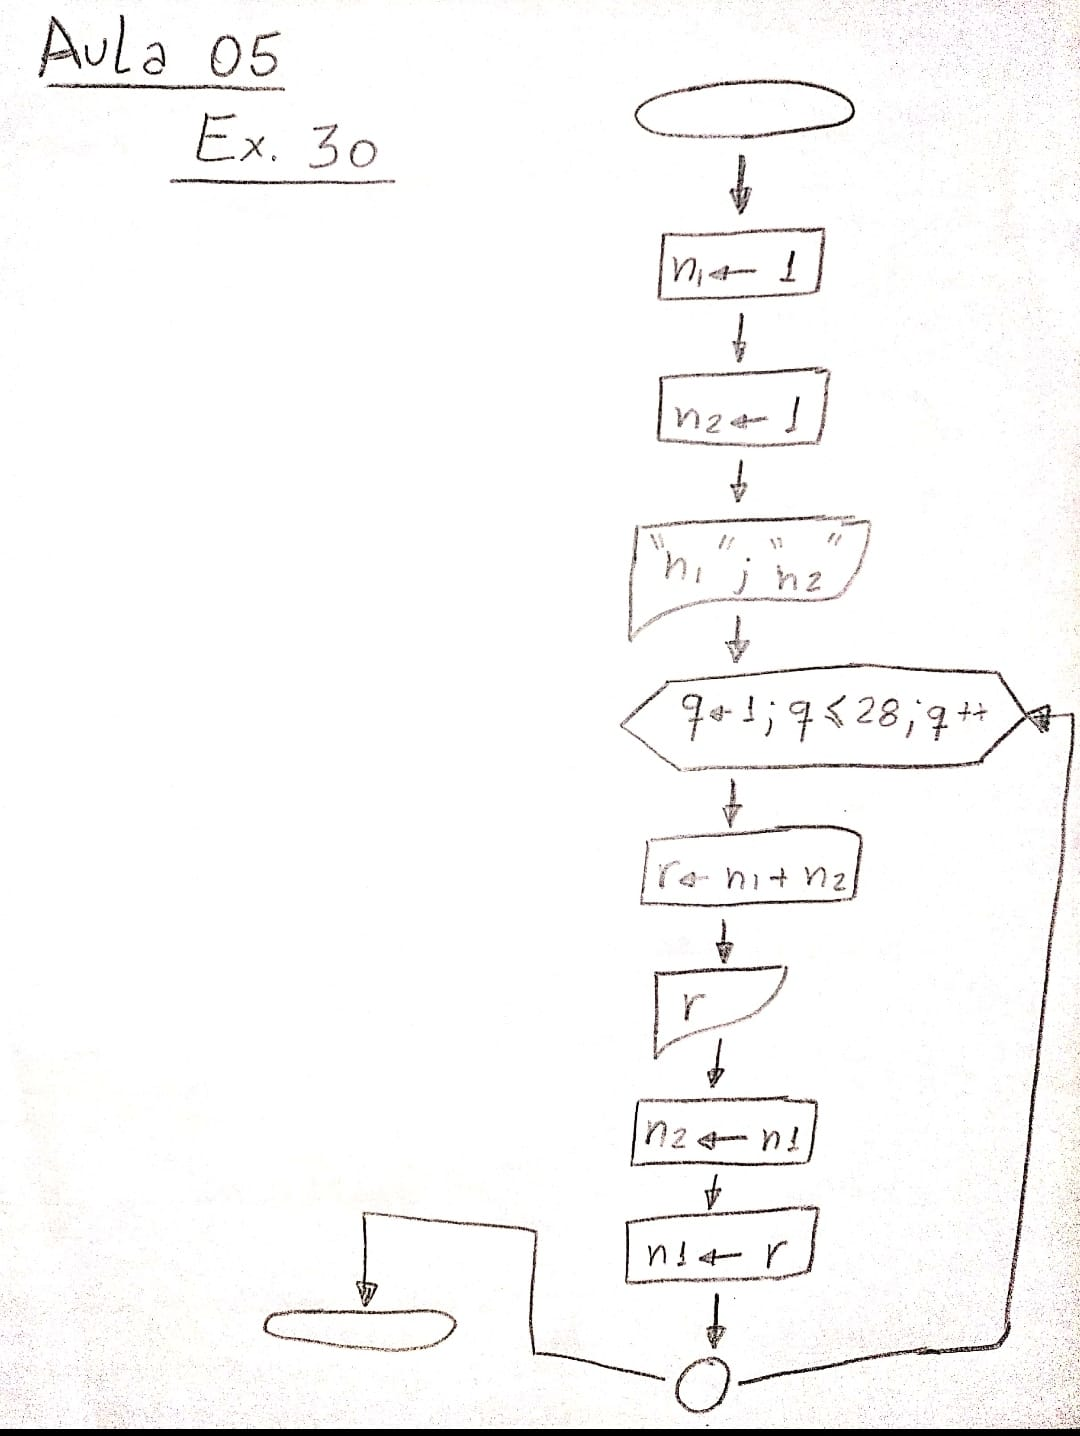 Aula 05
Ex. 30
n1 ← 1
n2 ← 1
"n1"; "n2"
q ← 1; q ≤ 28; q++
r ← n1 + n2
r
n2 ← n1
n1 ← r